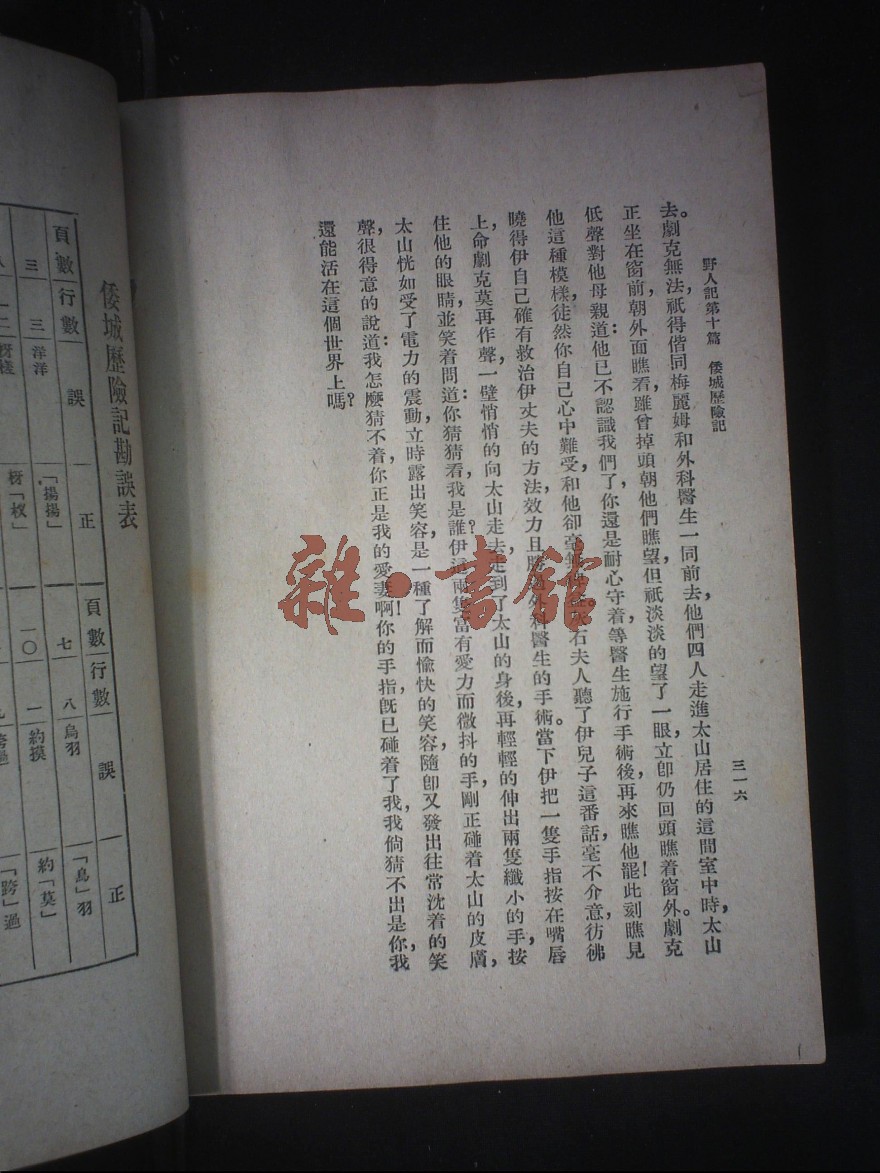 野人記第十篇　倭城歷險記
三一六
去。劇克無法，祇得偕同梅麗姆和外科醫生一同前去，他們四人走進太山居住的這間室中時，太山
正坐在窗前，朝外面瞧看，雖曾掉頭朝他們瞧望，但祇淡淡的望了一眼，立卽仍回頭瞧着窗外。劇克
低聲對他母親道：他已不認識我們了，你還是耐心守着，等醫生施行手術後，再來瞧他罷！此刻瞧見
他這種模樣，徒然你自己心中難受，和他卻毫無益。灰石夫人聽了伊兒子這番話，毫不介意，彷彿
曉得伊自己確有救治伊丈夫的方法，效力且勝外科醫生的手術。當下伊把一隻手指按在嘴唇
上，命劇克莫再作聲，一壁悄悄的向太山走去，走到了太山的身後，再輕輕的伸出兩隻纖小的手，按
住他的眼睛，並笑着問道：你猜猜看，我是誰？伊這兩隻富有愛力而微抖的手，剛正碰着太山的皮膚，
太山恍如受了電力的震動，立時露出笑容，是一種了解而愉快的笑容，隨卽又發出往常沈着的笑
聲，很得意的說道：我怎麼猜不着，你正是我的愛妻啊！你的手指，旣已碰着了我，我倘猜不出是你，我
還能活在這個世界上嗎？
倭城歷險記勘誤表
頁數 行數 誤 正 頁數 行數 誤 正
三 三 洋洋 「揚揚」 七 八 烏羽 「鳥」羽
一二 一〇 一 約摸 約「莫」
「跨」過
雜·書館